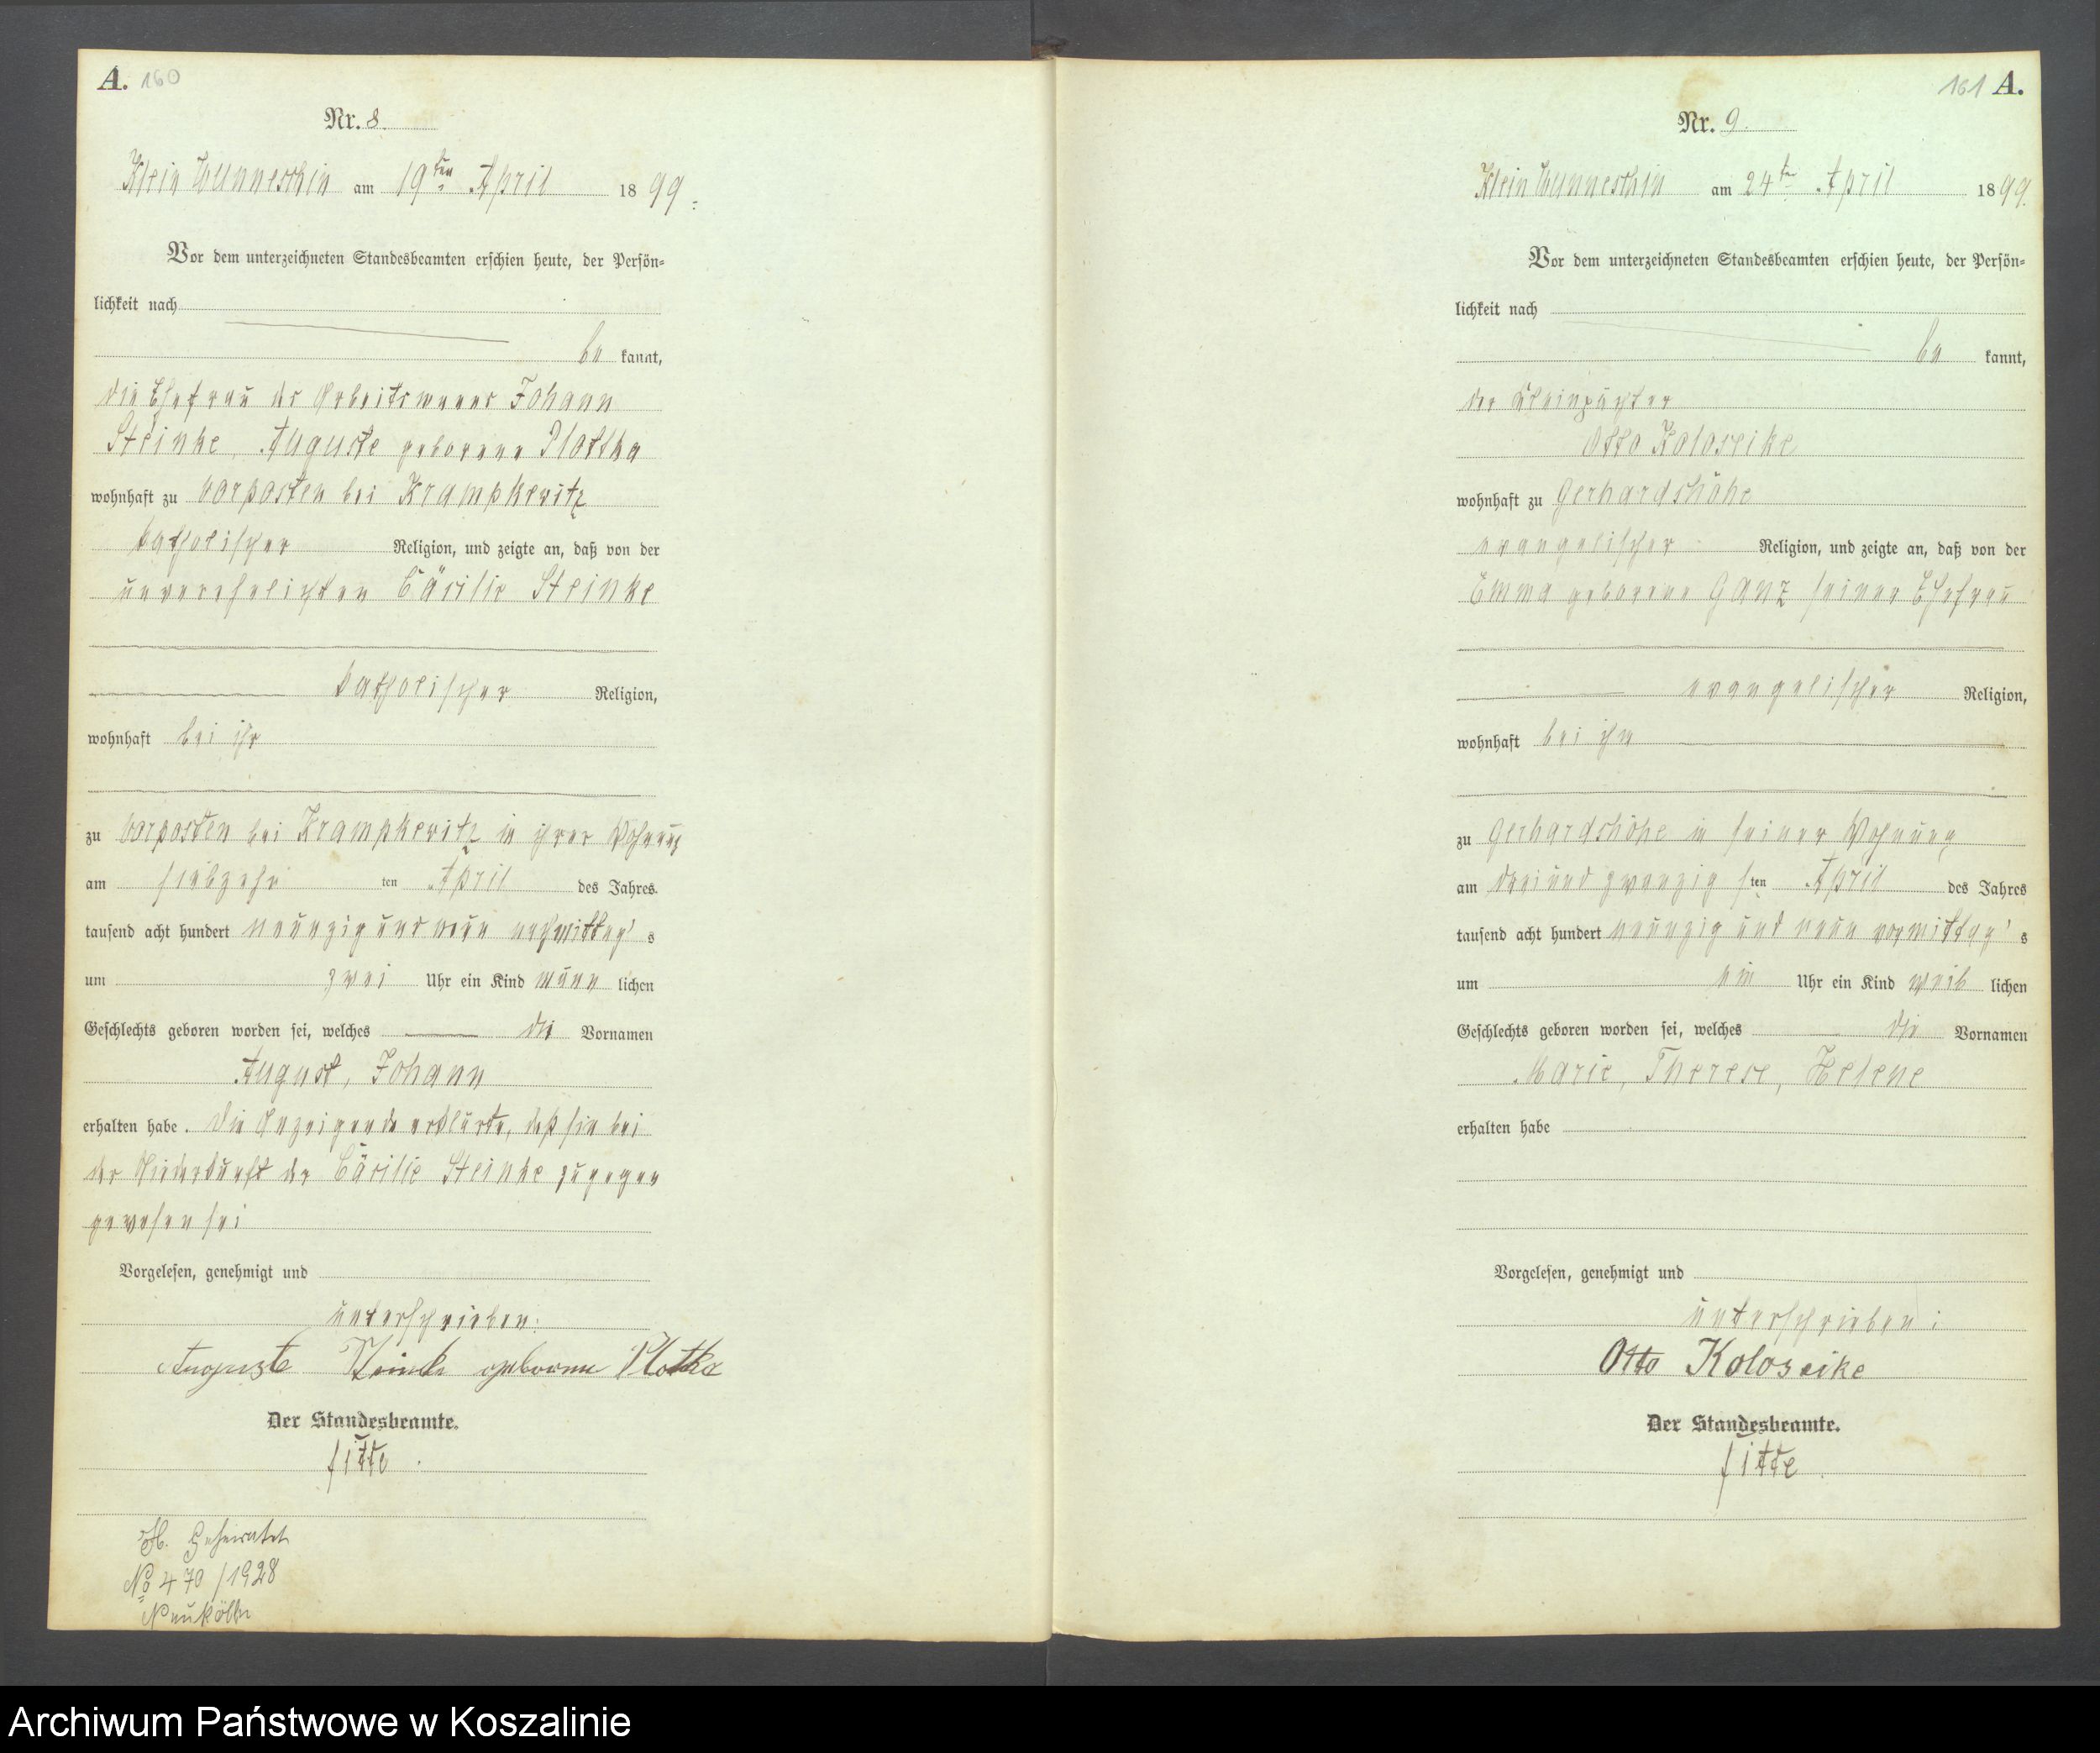 A. 160
Nr. 8.
Klein Wunneschin am 19ten April 1899.
Vor dem unterzeichneten Standesbeamten erschien heute, der Persön-
lichkeit nach
be kannt,
die Ehefrau des Arbeitsmanns Johann
Steinke, Auguste geborene Plottka
wohnhaft zu Vorposten bei Krampkewitz
katholischer Religion, und zeigte an, daß von der
unverehelichten Cäcilie Steinke
katholischer Religion,
wohnhaft bei ihr
zu Vorposten bei Krampkewitz in ihrer Wohnung
am siebzehn ten April des Jahres
tausend acht hundert neunzig und neun nachmittag's
um zwei Uhr ein Kind männ lichen
Geschlechts geboren worden sei, welches die Vornamen
August, Johann
erhalten habe. Die Anzeigende erklärte, daß sie bei
der Niederkunft der Cäcilie Steinke zugegen
gewesen sei
Vorgelesen, genehmigt und
unterschrieben:
Auguste Steinke geborne Plotka
Der Standesbeamte.
Fitte
H. Geheiratet
No 470/1928
Neukölln
161 A.
Nr. 9.
Klein Wunneschin am 24te April 1899.
Vor dem unterzeichneten Standesbeamten erschien heute, der Persön-
lichkeit nach
be kannt,
der Kleinpächter
Otto Koloseike
wohnhaft zu Gerhardshöhe
evangelischer Religion, und zeigte an, daß von der
Emma geborene Ganz seiner Ehefrau
evangelischer Religion,
wohnhaft bei ihm
zu Gerhardshöhe in seiner Wohnung
am dreiundzwanzig sten April des Jahres
tausend acht hundert neunzig und neun vormittag's
um ein Uhr ein Kind weib lichen
Geschlechts geboren worden sei, welches die Vornamen
Marie, Therese, Helene
erhalten habe
Vorgelesen, genehmigt und
unterschrieben:
Otto Koloseike
Der Standesbeamte.
Fitte
Archiwum Państwowe w Koszalinie